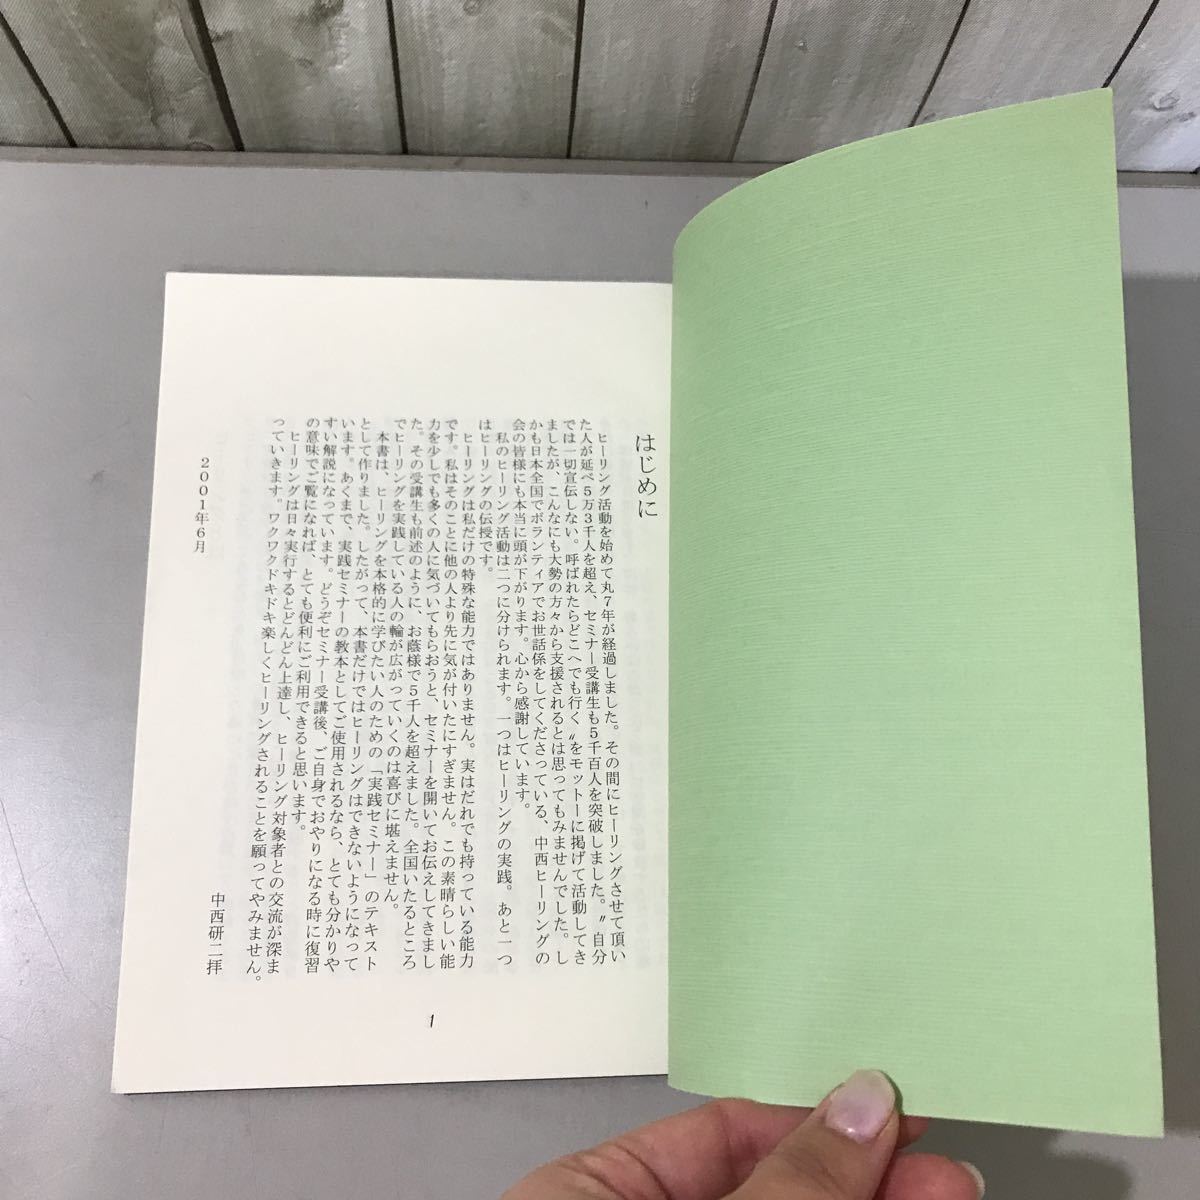 はじめに
ヒーリング活動を始めて丸7年が経過しました。その間にヒーリングさせて頂い
た人が延べ5万3千人を超え、セミナー受講生も5千百人を突破しました。〝自分
では一切宣伝しない。呼ばれたらどこへでも行く〟をモットーに掲げて活動してき
ましたが、こんなにも大勢の方々から支援されるとは思ってもみませんでした。し
かも日本全国でボランティアでお世話係をしてくださっている、中西ヒーリングの
会の皆様にも本当に頭が下がります。心から感謝しています。
私のヒーリング活動は二つに分けられます。一つはヒーリングの実践。あと一つ
はヒーリングの伝授です。
ヒーリングは私だけの特殊な能力ではありません。実はだれでも持っている能力
です。私はそのことに他の人より先に気が付いたにすぎません。この素晴らしい能
力を少しでも多くの人に気づいてもらおうと、セミナーを開いてお伝えしてきまし
た。その受講生も前述のように、お蔭様で5千人を超えました。全国いたるところ
でヒーリングを実践している人の輪が広がっていくのは喜びに堪えません。
本書は、ヒーリングを本格的に学びたい人のための「実践セミナー」のテキスト
として作りました。したがって、本書だけではヒーリングはできないようになって
います。あくまで、実践セミナーの教本としてご使用されるなら、とても分かりや
すい解説になっています。どうぞセミナー受講後、ご自身でおやりになる時に復習
の意味でご覧になれば、とても便利にご利用できると思います。
ヒーリングは日々実行するとどんどん上達し、ヒーリング対象者との交流が深ま
っていきます。ワクワクドキドキ楽しくヒーリングされることを願ってやみません。
2001年6月
中西研二拝
1